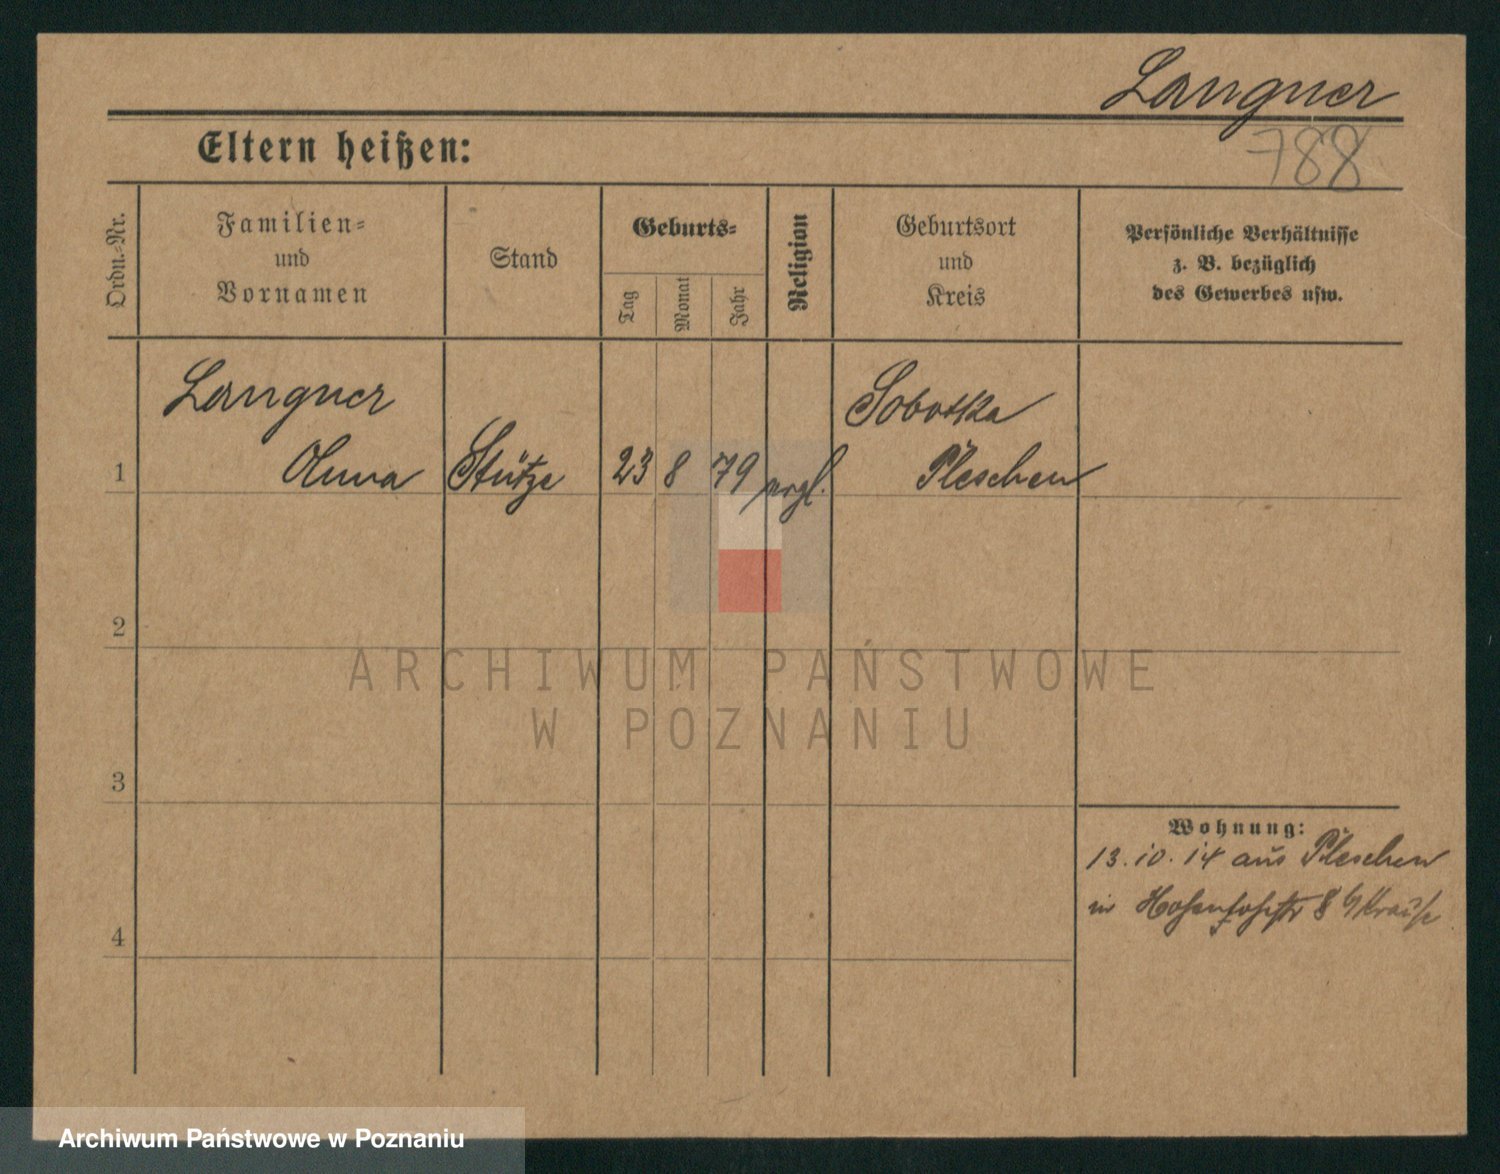 Langner
788
Eltern heißen:
Ordn.-Nr.
Familien-
und
Vornamen
Stand
Geburts-
Tag
Monat
Jahr
Religion
Geburtsort
und
Kreis
Persönliche Verhältnisse
z. B. bezüglich
des Gewerbes usw.
Langner
Anna
Stütze
23 8 79
Sobotka
Pleschen
1
2
3
4
Wohnung:
13.10.14 aus Pleschen
in 8 b/Krause
ARCHIWUM PAŃSTWOWE
W POZNANIU
Archiwum Państwowe w Poznaniu